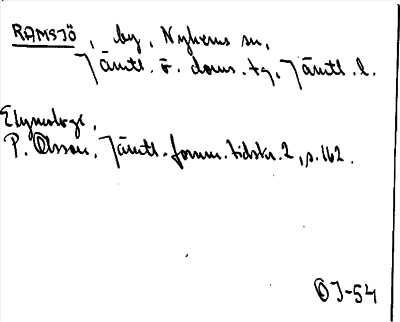 RAMSJÖ, by, Nyhems sn,
Jämtl. ö. doms. tg, Jämtl. l.
Etymologi,
P. Olsson, Jämtl. fornm. tidskr. 2, s. 162.
OJ-54